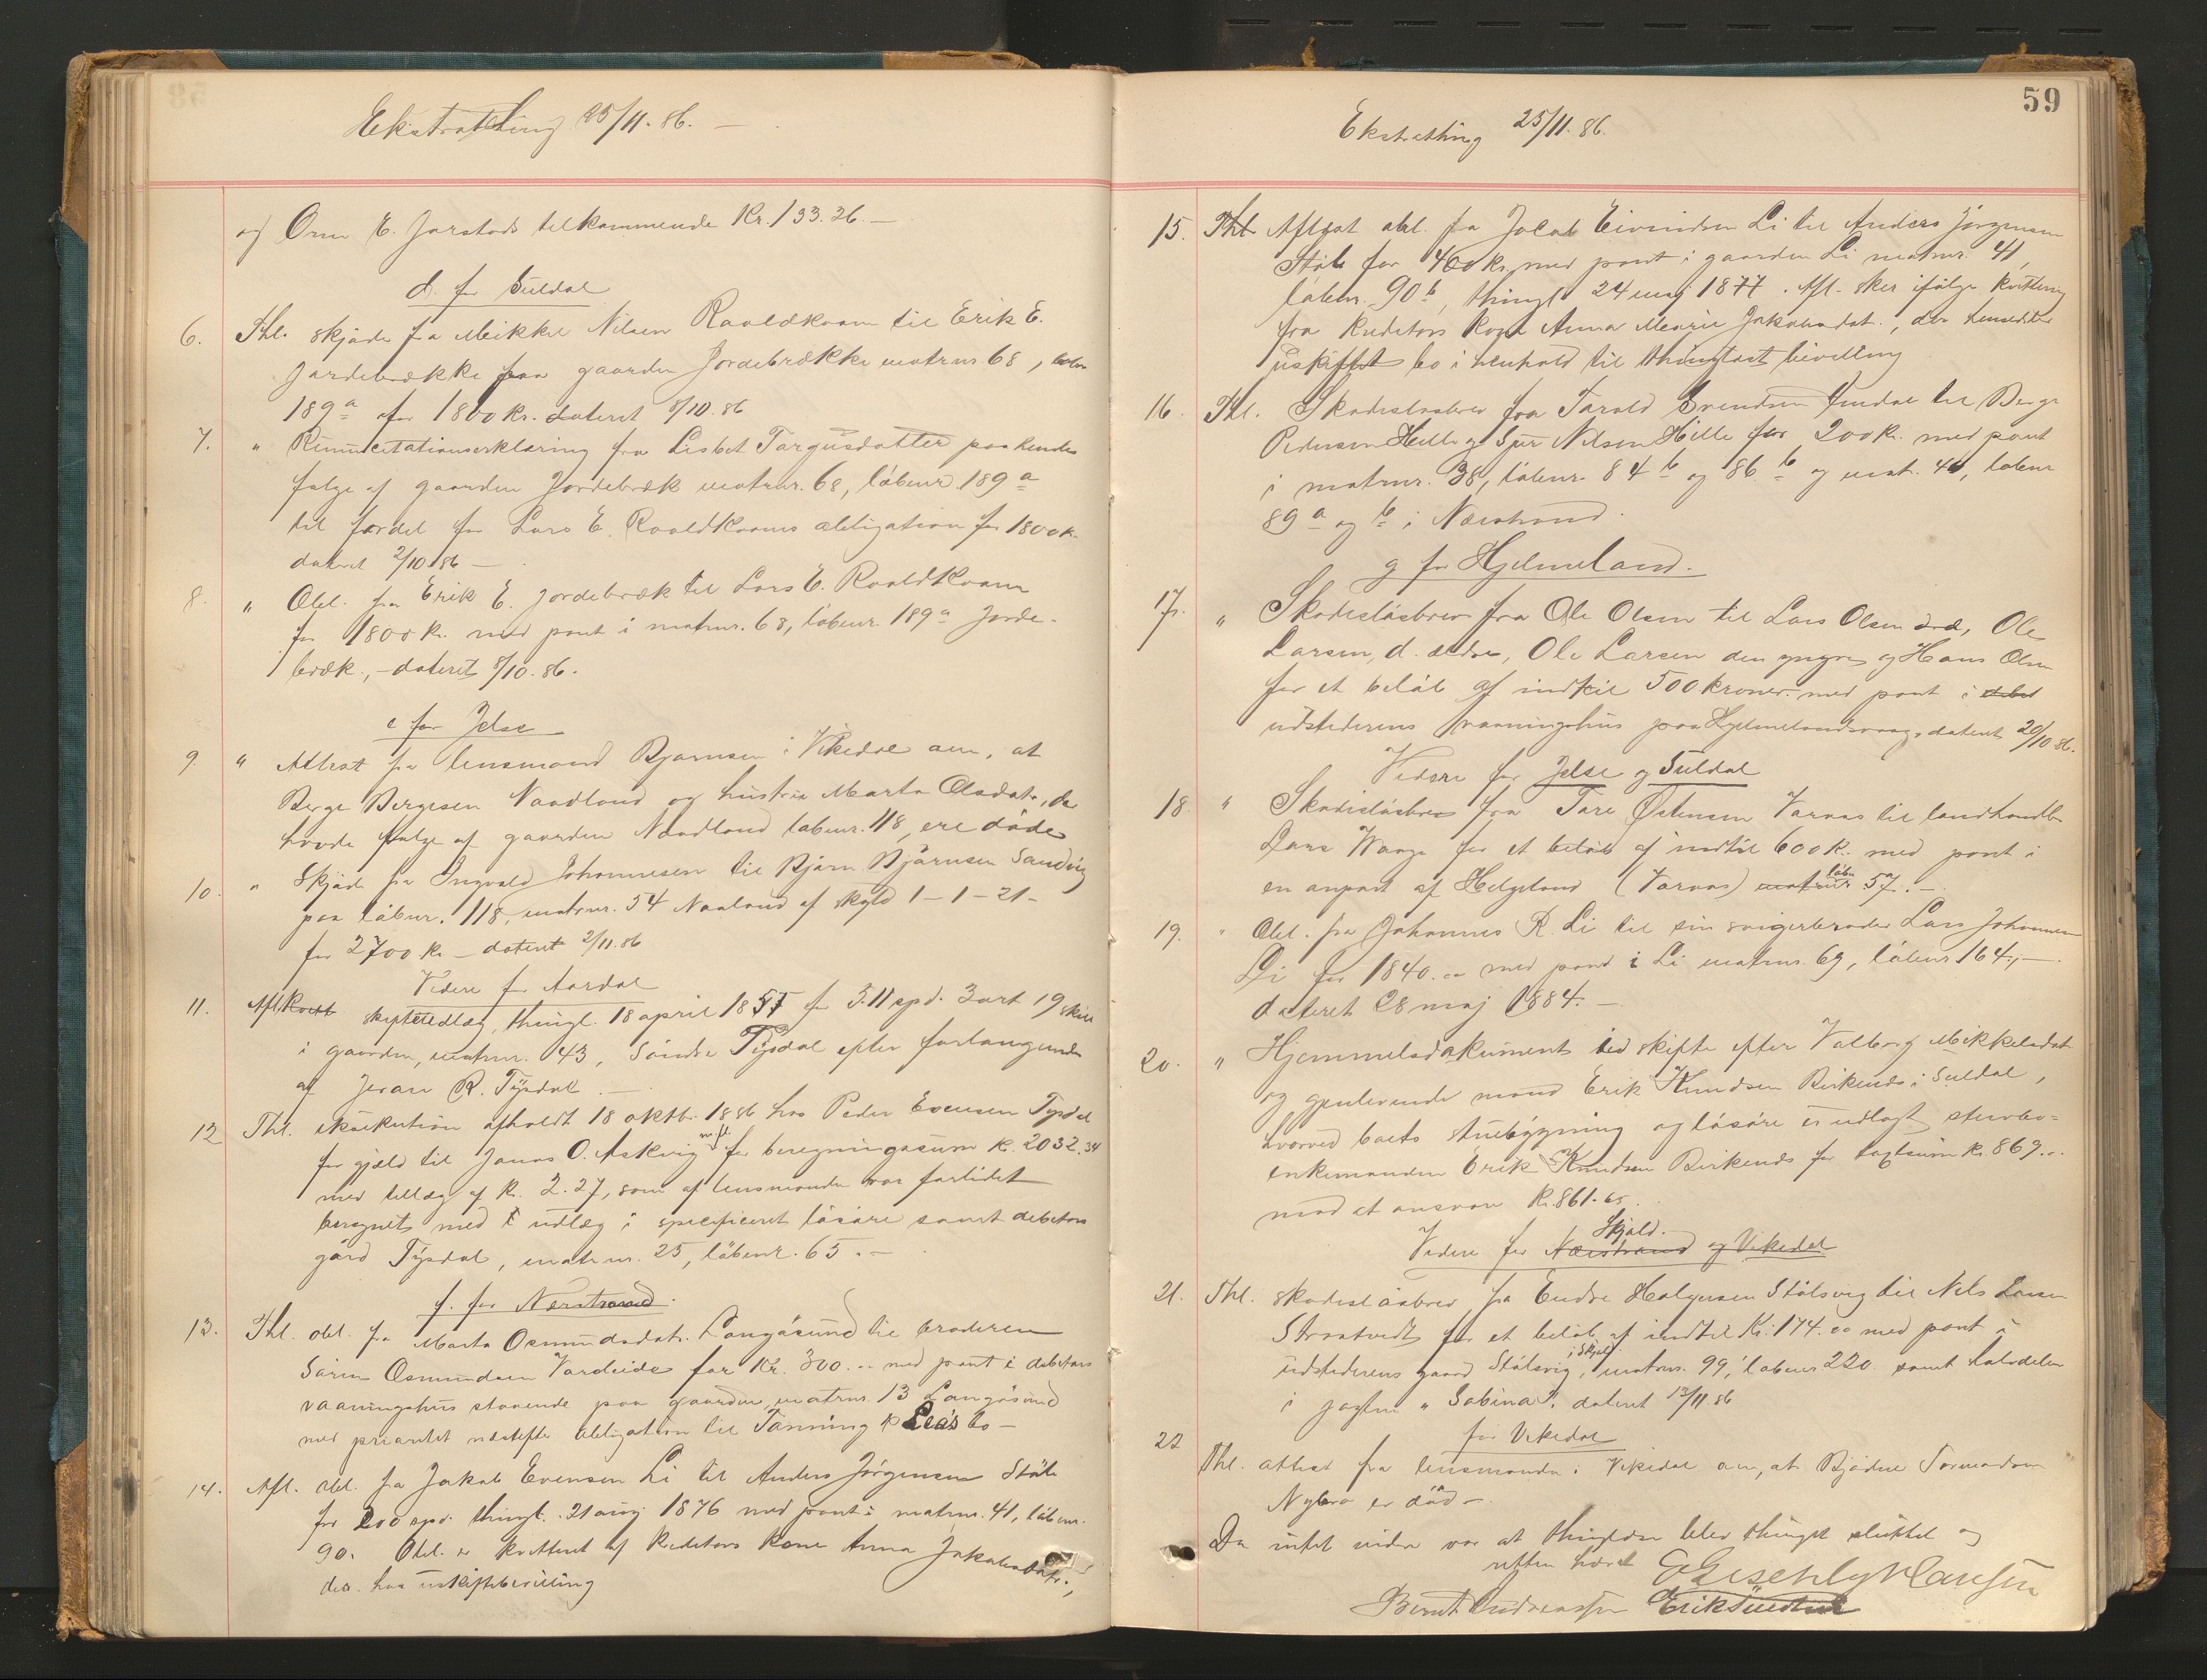 Ekstrathing 25/11. 86. —
af Orm E. Jarstads tilkommende Kr. 133.26. —
d. for Suldal
6. Thl. skjøde fra Mikkel Nilsen Roaldkvam til Erik E.
Jordebrække paa gaarden Jordebrække matrnr 68, løbnr
189 a for 1800 kr. dateret 8/10. 86
7. " Renunciationserklæring fra Lisbet Targusdatter paa hendes
følge af gaarden Jordebræk matrnr. 68, løbenr 189 a
til fordel for Lars E. Roaldkvams obligation for 1800 kr.
dateret 2/10 86 —
8. " Obl. fra Erik E. Jordebræk til Lars E. Roaldkvam
for 1800 kr. med pant i matrnr. 68, løbenr 189 a Jorde-
bræk, - dateret 8/10. 86.
e for Jelse
9. " Attest fra lensmand Bjørnsen i Vikedal om, at
Berge Bergesen Naadland og hustru Marta Olsdatr, der
havde følge af gaarden Naadland løbenr. 118, ere døde
10. " Skjøde fra Ingvald Johannesen til Bjørn Bjørnsen Sandvig
paa løbnr. 118, matrnr. 54 Naaland af skyld 1 - 1 - 21 -
for 2700 kr — dateret 2/11. 86
Videre for Aardal
11. Afl. skifteudlæg, thingl. 18 april 1857 for 511 spd. 3 ort 19 skill
i gaarden, matrnr. 43, Søndre Tysdal efter forlangende
af Jeran R. Tysdal. —
12 Thl. eksekution afholdt 18 oktb. 1886 hos Peder Evensen Tysdal
for gjæld til Jonas O. Askvig m. fl. for beregningssum kr. 2032.34
med tillæg af kr. 2.27, som af lensmanden var forlidet
beregnet med udlæg i specificeret løsøre samt debitors
gård Tysdal, matrnr. 25, løbenr. 65. —
f. for Nærstrand
13. Thl. obl. fra Marta Osmundsdatr. Langåsund til broderen
Søren Osmundsen Vardeide for Kr. 300.- med pant i debitors
vaaningshus staaende paa gaarden, matrnr. 13 Langåsund
med prioritet næstefter obligation til Tønning & Leas bo —
14. Afl. obl. fra Jakob Evensen Li til Anders Jørgensen Støle
for 200 spd. thingl. 21 aug 1876 med pant i matrnr. 41, løbenr.
90. Obl. er kvitteret af kreditors kone Anna Jakobsdatr.,
der har uskiftebevilling
59
Ekstrathing 25/11. 86.
15. Aflyst obl. fra Jacob Eivindsen Li til Anders Jørgensen
Støle for 400 kr. med pant i gaarden Li matrnr. 41,
løbenr. 90 b, thingl. 24 maj 1877. Afl. sker ifølge kvittering
fra kreditors kone Anna Marie Jakobsdat., der hensidder
i uskiftet bo i henhold til thinglæst bevilling
16. Thl. Skadesløsbrev fra Tarald Svendsen til Berge
Pedersen Hille og Sjur Nilsen Hille for 200 kr. med pant
i matrnr. 38, løbenr. 84 b og 86 b og matr. 40, løbenr
89 a og b i Nærstrand.
g for Hjelmeland.
17. " Skadesløsbrev fra Ole Olsen til Lars Olsen, Ole
Larsen, d. ældre, Ole Larsen den yngre og Hans Olsen
for et beløb af indtil 500 kroner med pant i
udstederens vaaningshus paa Hjelmelandsvaag, dateret 20/10 86.
Videre for Jelse og Suldal
18. " Skadesløsbrev fra Tore Østensen Varvas til landhandler
Lars Waage for et beløb af indtil 600 kr. med pant i
en anpart af Helgeland (Varvas) matrnr løbn 57. —
19. " Obl. fra Johannes R. Li til sin svigerbroder Lars Johannesen
Li for 1840.00 med pant i Li matrnr. 69, løbenr 164, —
dateret 28 maj 1884. —
20. " Hjemmelsdokument ved skifte efter Valborg Mikkelsdat
og gjenlevende mand Erik Knudsen Birkenes i Suldal,
hvorved boets stuebygning og løsøre er udlagt stervbo-
enkemanden Erik Knudsen Birkenes for taxtsum kr. 869...
mod et ansvar Kr. 861.65.
Videre for Nærstrand og Vikedal Skjold.
21. Thl. skadesløsbrev fra Endre Halgersen Stølsvig til Nils Larsen
Straatvedt for et beløb af indtil Kr. 174.00 med pant i
udstederens gaard Stølsvig, i Skjold matrnr. 99, løbenr 220 samt halvdelen
i jagten "Sabina", dateret 13/11. 86
for Vikedal
22 Thl. attest fra lensmanden i Vikedal om, at Bjødne Tormodsen
Nybro er død —.
Da intet videre var at thinglæse blev thinget sluttet og
retten hævet